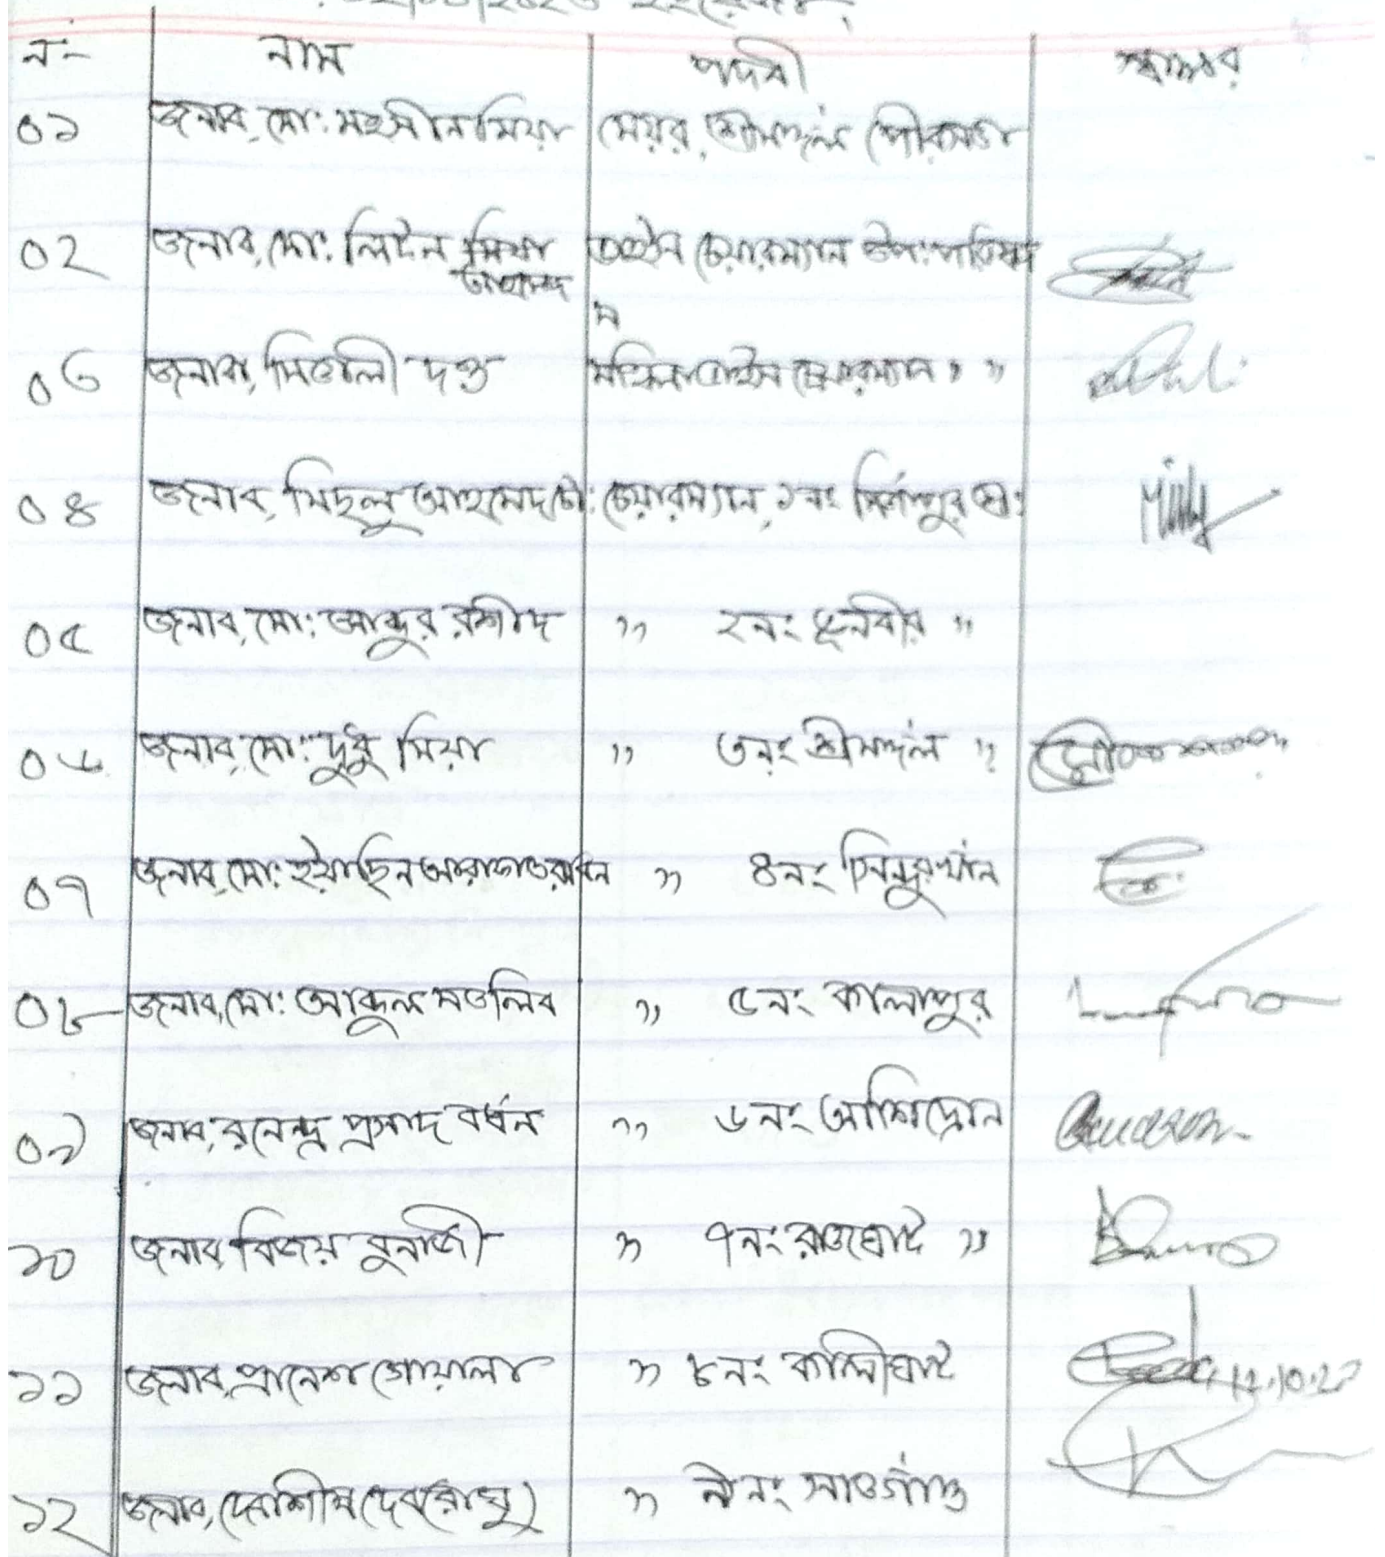 নং নাম পদবী স্বাক্ষর
০১ জনাব, মো: মহসীন মিয়া মেয়র, শ্রীমঙ্গল পৌরসভা
০২ জনাব, মো: লিটন মিয়া ভাইস চেয়ারম্যান উপ: পরিষদ
আহমেদ
ম
০৩ জনাব, মিতালী দত্ত মহিলা ভাইস চেয়ারম্যান " "
০৪ জনাব, মিছলু আহমেদ চৌ: চেয়ারম্যান, ১নং মির্জাপুর ইউ:
০৫ জনাব, মো: আব্দুর রশীদ " ২নং ভূনবীর "
০৬ জনাব, মো: দুধু মিয়া " ৩নং শ্রীমঙ্গল "
০৭ জনাব, মো: ইয়াছিন আরাফাত রবিন " ৪নং সিন্দুরখাঁন
০৮ জনাব, মো: আব্দুল মতলিব " ৫নং কালাপুর
০৯ জনাব, রনেন্দ্র প্রসাদ বর্ধন " ৬নং আশিদ্রোন
১০ জনাব বিজয় বুনার্জী " ৭নং রাজঘাট "
১১ জনাব, প্রানেশ গোয়ালা " ৮নং কালীঘাট
12.10.22
১২ জনাব, দেবাশিষ দেব (রাখু) " ৯নং সাতগাঁও